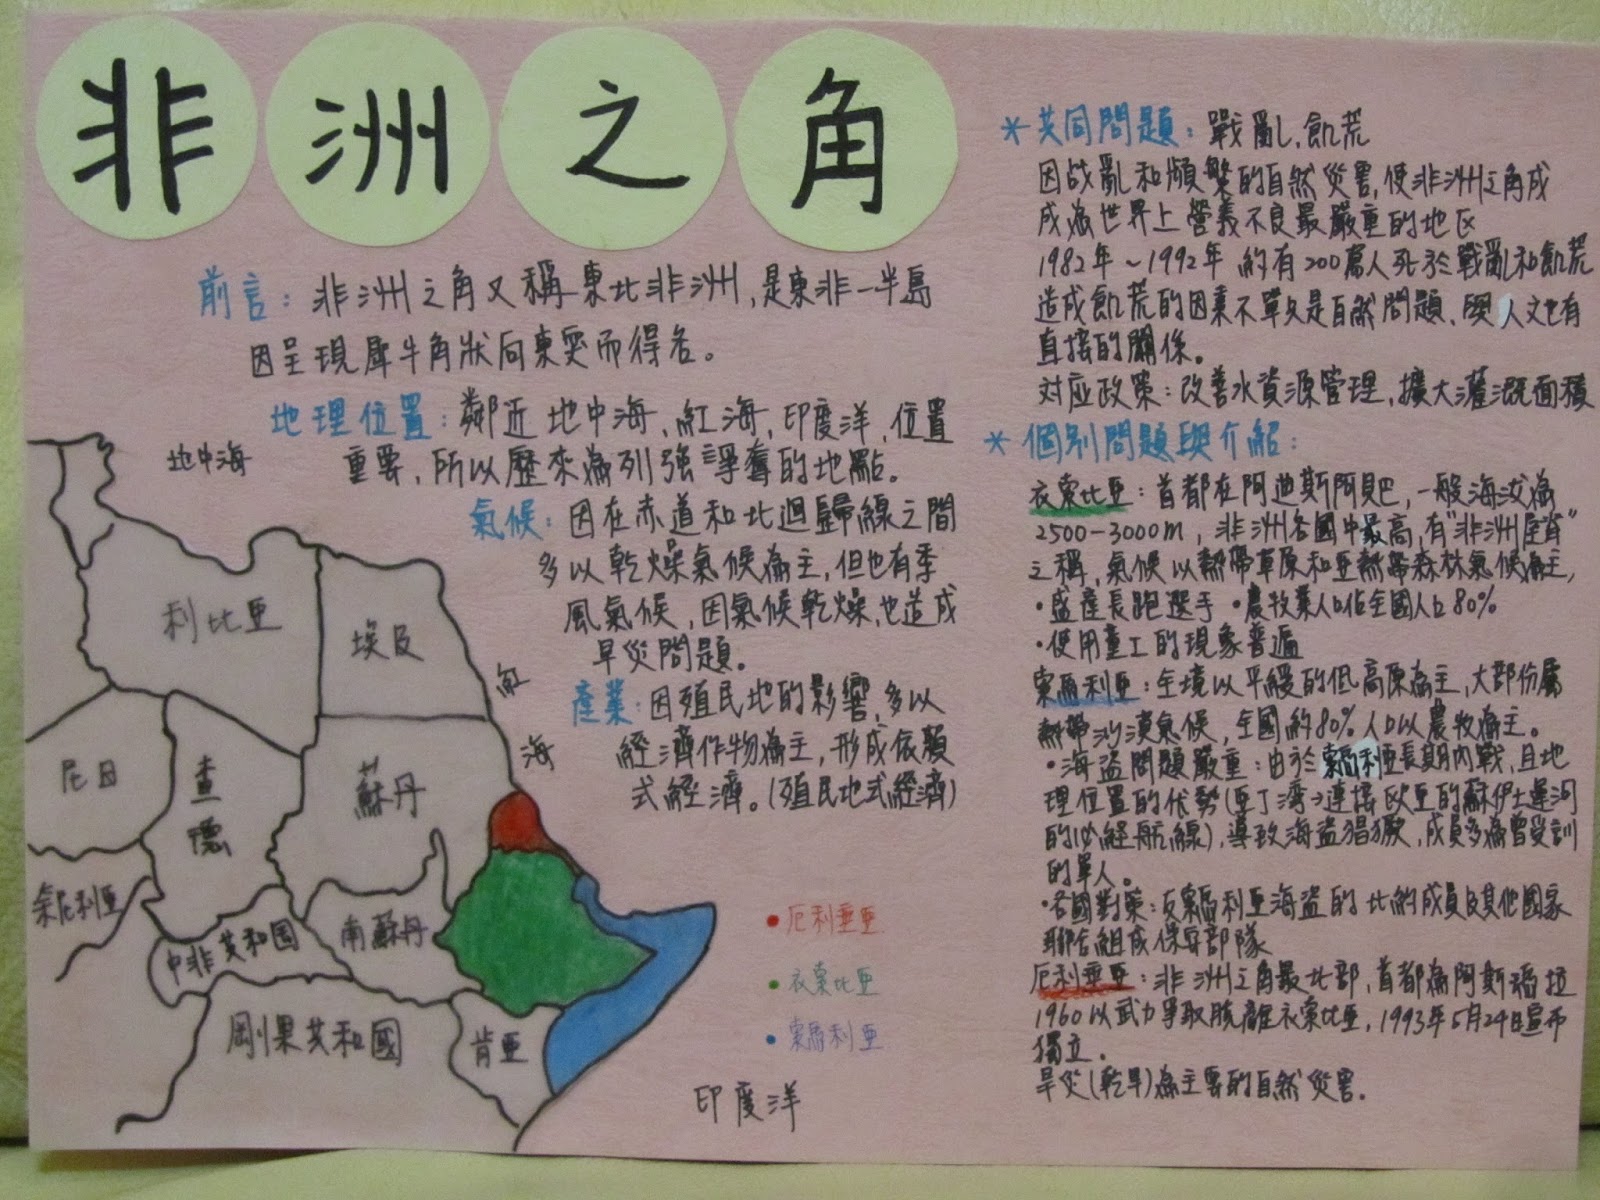 非洲之角
前言：非洲之角又稱東北非洲，是東非一半島
因呈現犀牛角狀向東突而得名。
地理位置：鄰近地中海，紅海，印度洋，位置
重要，所以歷來為列強爭奪的地點。
氣候：因在赤道和北迴歸線之間
多以乾燥氣候為主，但也有季
風氣候，因氣候乾燥，也造成
旱災問題。
產業：因殖民地的影響，多以
經濟作物為主，形成依賴
式經濟。(殖民地式經濟)
地中海
利比亞
埃及
紅
海
尼日
查
德
蘇丹
奈尼利亞
中非共和國
南蘇丹
剛果共和國
肯亞
•厄利垂亞
•衣索比亞
•索馬利亞
印度洋
*共同問題：戰亂，飢荒
因战亂和頻繁的自然災害，使非洲之角成
成為世界上營養不良最嚴重的地区
1982年~1992年 約有200萬人死於戰亂和飢荒
造成飢荒的因素不單只是自然問題、與人文也有
直接的關係。
对应政策：改善水資源管理，擴大灌溉面積
*個別問題與介紹：
衣索比亞：首都在阿迪斯阿貝巴，一般海拔為
2500-3000m，非洲各國中最高，有"非洲屋脊"
之稱，氣候以熱帶草原和亞熱帶森林氣候為主，
•盛產長跑選手 •農牧業人口佔全國人口80%
•使用童工的現象普遍
索馬利亞：全境以平緩的低高原為主，大部份屬
熱帶沙漠氣候，全國約80%人口以農牧為主。
•海盜問題嚴重：由於索馬利亞長期內戰，且地
理位置的优勢(亞丁湾→連接欧亞的蘇伊士運河
的必經航線)，導致海盜猖獗，成員多為曾受訓
的軍人。
•各國對策：反索馬利亞海盜的比約成員及其他國家
聯合組成保安部隊
厄利垂亞：非洲之角最北部，首都為阿斯瑪拉
1960以武力爭取脫離衣索比亞，1993年5月24日宣布
獨立．
旱災(乾旱)為主要的自然災害．